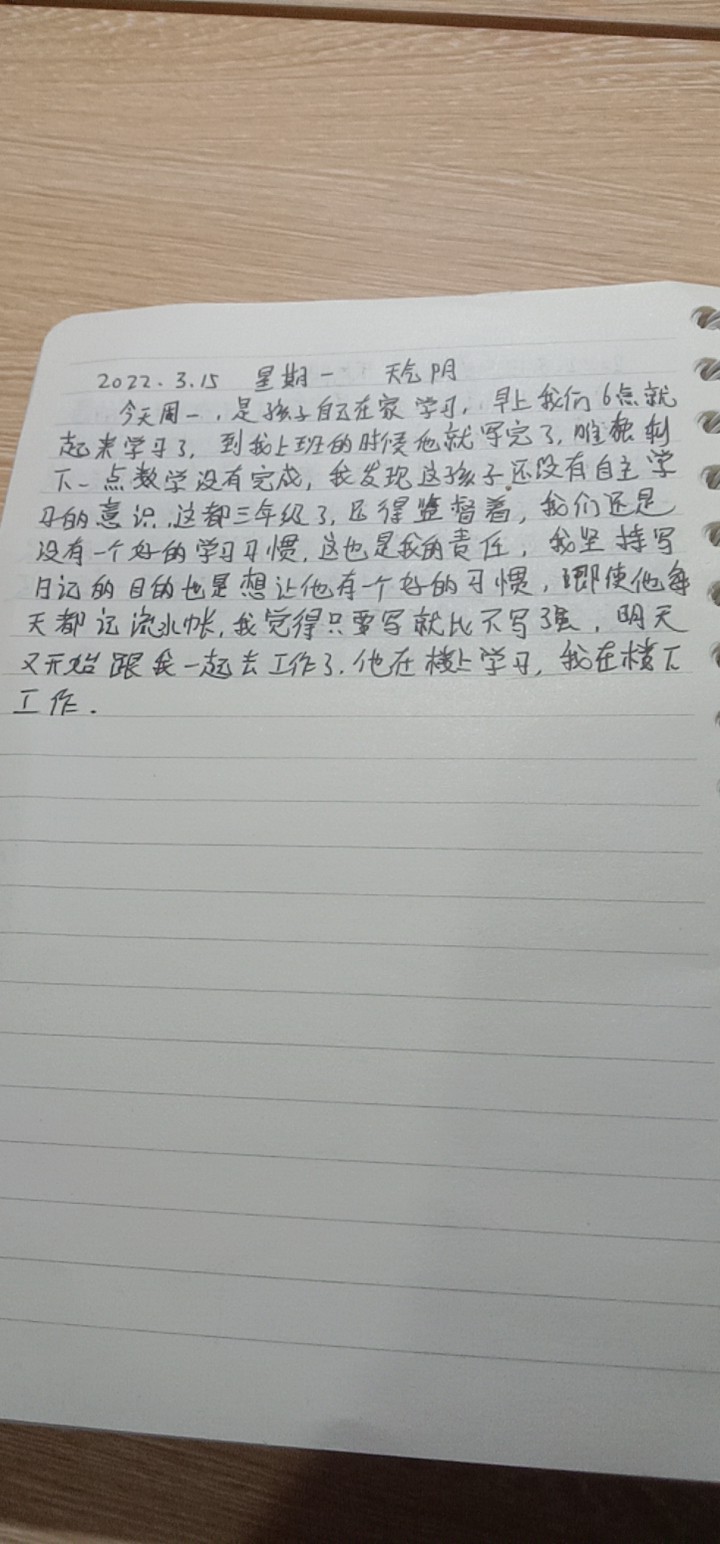 2022.3.15 星期一 天气阴
今天周一,是孩子自己在家学习,早上我们6点就
起来学习了,到我上班的时候他就写完了,唯独剩
下一点数学没有完成,我发现这孩子还没有自主学
习的意识,这都三年级了,还得监督着,我们还是
没有一个好的学习习惯,这也是我的责任,我坚持写
日记的目的也是想让他有一个好的习惯,即使他每
天都记流水帐,我觉得只要写就比不写强,明天
又开始跟我一起去工作了,他在楼上学习,我在楼下
工作.